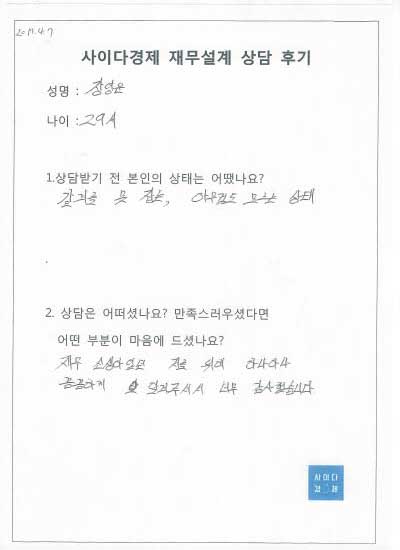 2017.4.7
사이다경제 재무설계 상담 후기
성명 : 장영운
나이 : 29세
1.상담받기 전 본인의 상태는 어땠나요?
갈피를 못 잡는, 아무것도 모르는 상태
2. 상담은 어떠셨나요? 만족스러우셨다면
어떤 부분이 마음에 드셨나요?
재무 초심자였던 저를 위해 하나하나
꼼꼼하게 잘 알려주셔서 너무 감사했습니다.
사이다
경제